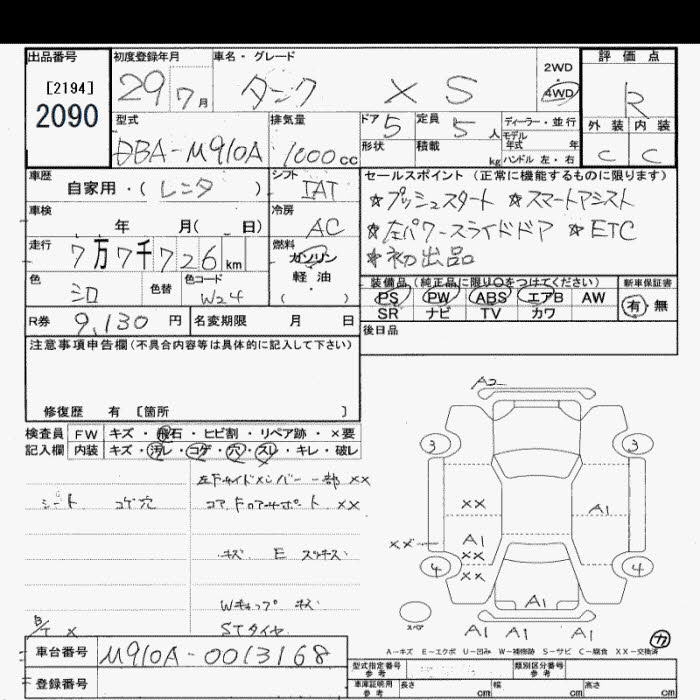 出品番号 初度登録年月 車名・グレード 2WD 評価点
[2194] 29 7月 タンク X S 4WD R
2090 型式 排気量 ドア 5 定員 5人 ディーラー・並行 外装 内装
DBA-M910A 1000cc 形状 積載 kg モデル年式 年 ハンドル 左・右 C C
車歴 シフト セールスポイント (正常に機能するものに限ります)
自家用・( レンタ ) IAT ☆プッシュスタート ☆スマートアシスト
車検 年 月( 日) 冷房 AC ☆左パワースライドドア ☆ETC
走行 7万7千726km 燃料 ガソリン 軽・油 ( ) ☆初出品
色 シロ 色替 色コード W24 装備品 (純正品に限り○をつけてください) 新車保証書
PS PW ABS エアB AW 有・無
R券 9,130円 名変期限 月 日 SR ナビ TV カワ
注意事項申告欄(不具合内容等は具体的に記入して下さい) 後日品
修復歴 有 [箇所 ]
検査員 FW キズ・飛石・ヒビ割・リペア跡・×要
記入欄 内装 キズ・汚レ・コゲ・穴・スレ・キレ・破レ
左Fサイドメンバー一部 XX
シート コゲ穴 コアF ロアサポート XX
キズ E スッキズ
Wキャップ キズ
STタイヤ
A2
3 3
XX A1
XX A1
XX
4 XX 4
A1
スペア A1 A1 A1 カ
A-キズ E-エクボ U-凹み W-補修跡 S-サビ C-腐食 XX-交換済
車台番号 M910A-0013168 型式指定番号 参考 類別区分番号 参考
登録番号 車庫証明用 参考 長さ cm 幅 cm 高さ cm